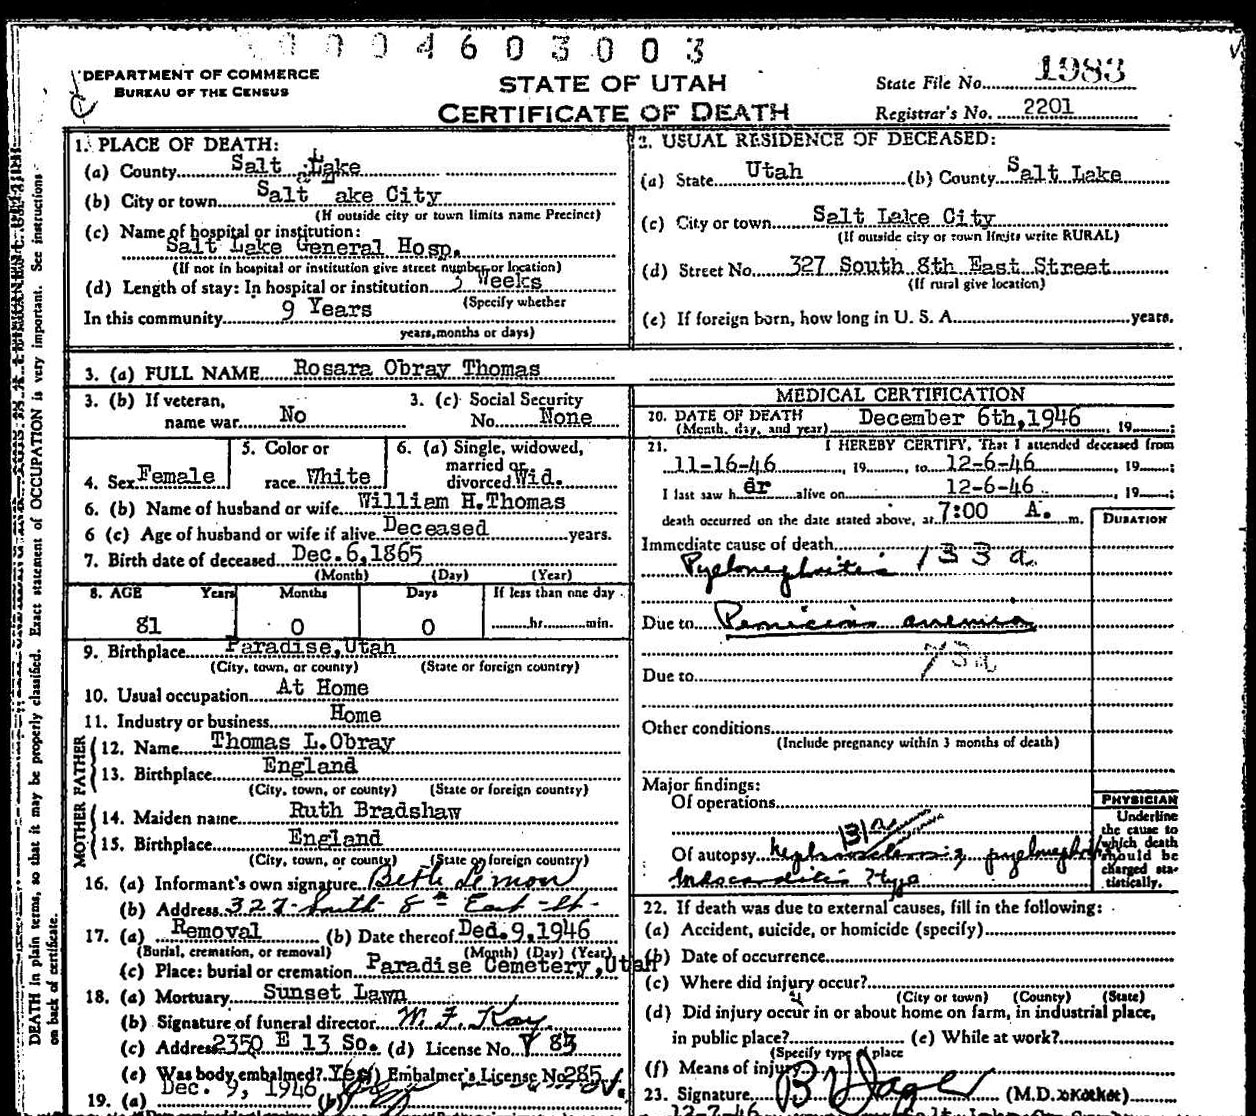 0004603003
DEPARTMENT OF COMMERCE
BUREAU OF THE CENSUS
STATE OF UTAH
CERTIFICATE OF DEATH
State File No. 1983
Registrar's No. 2201
1. PLACE OF DEATH:
(a) County Salt Lake
(b) City or town Salt ake City
(If outside city or town limits name Precinct)
(c) Name of hospital or institution:
Salt Lake General Hosp.
(If not in hospital or institution give street number or location)
(d) Length of stay: In hospital or institution 3 Weeks
(Specify whether
In this community 9 Years
years, months or days)
2. USUAL RESIDENCE OF DECEASED:
(a) State Utah (b) County Salt Lake
(c) City or town Salt Lake City
(If outside city or town limits write RURAL)
(d) Street No. 327 South 8th East Street
(If rural give location)
(e) If foreign born, how long in U. S. A. years.
3. (a) FULL NAME Rosara Obray Thomas
3. (b) If veteran, name war No
3. (c) Social Security No. None
4. Sex Female
5. Color or race White
6. (a) Single, widowed, married or divorced Wid.
6. (b) Name of husband or wife William H.Thomas
6 (c) Age of husband or wife if alive Deceased years.
7. Birth date of deceased Dec.6,1865
(Month) (Day) (Year)
8. AGE Years Months Days If less than one day
81 0 0 hr. min.
9. Birthplace Paradise,Utah
(City, town, or county) (State or foreign country)
10. Usual occupation At Home
11. Industry or business Home
FATHER
12. Name Thomas L.Obray
13. Birthplace England
(City, town, or county) (State or foreign country)
MOTHER
14. Maiden name Ruth Bradshaw
15. Birthplace England
(City, town, or county) (State or foreign country)
16. (a) Informant's own signature Beth Simon
(b) Address 327 South 8th East St.
17. (a) Removal (b) Date thereof Dec.9,1946
(Burial, cremation, or removal) (Month) (Day) (Year)
(c) Place: burial or cremation Paradise Cemetery,Utah
18. (a) Mortuary Sunset Lawn
(b) Signature of funeral director W. F. Kay
(c) Address 2350 E 13 So. (d) License No. 83
(e) Was body embalmed? Yes Embalmer's License No. 285
19. (a) Dec. 9, 1946 (b)
MEDICAL CERTIFICATION
20. DATE OF DEATH December 6th,1946, 19 ;
(Month, day, and year)
21. I HEREBY CERTIFY, That I attended deceased from
11-16-46, 19 , to 12-6-46, 19 ;
I last saw h er alive on 12-6-46, 19 ;
death occurred on the date stated above, at 7:00 A. m.
DURATION
Immediate cause of death
Pyelonephritis 133 a
Due to Pernicious anemia
73a
Due to
Other conditions
(Include pregnancy within 3 months of death)
Major findings:
Of operations
131a
Of autopsy nephrosclerosis, pyelonephritis
PHYSICIAN
Underline the cause to which death should be charged statistically.
22. If death was due to external causes, fill in the following:
(a) Accident, suicide, or homicide (specify)
(b) Date of occurrence
(c) Where did injury occur?
(City or town) (County) (State)
(d) Did injury occur in or about home on farm, in industrial place,
in public place? (e) While at work?
(Specify type of place
(f) Means of injury
23. Signature (M.D.
12-7-46
DEATH in plain terms, so that it may be properly classified. Exact statement of OCCUPATION is very important. See instructions
on back of certificate.